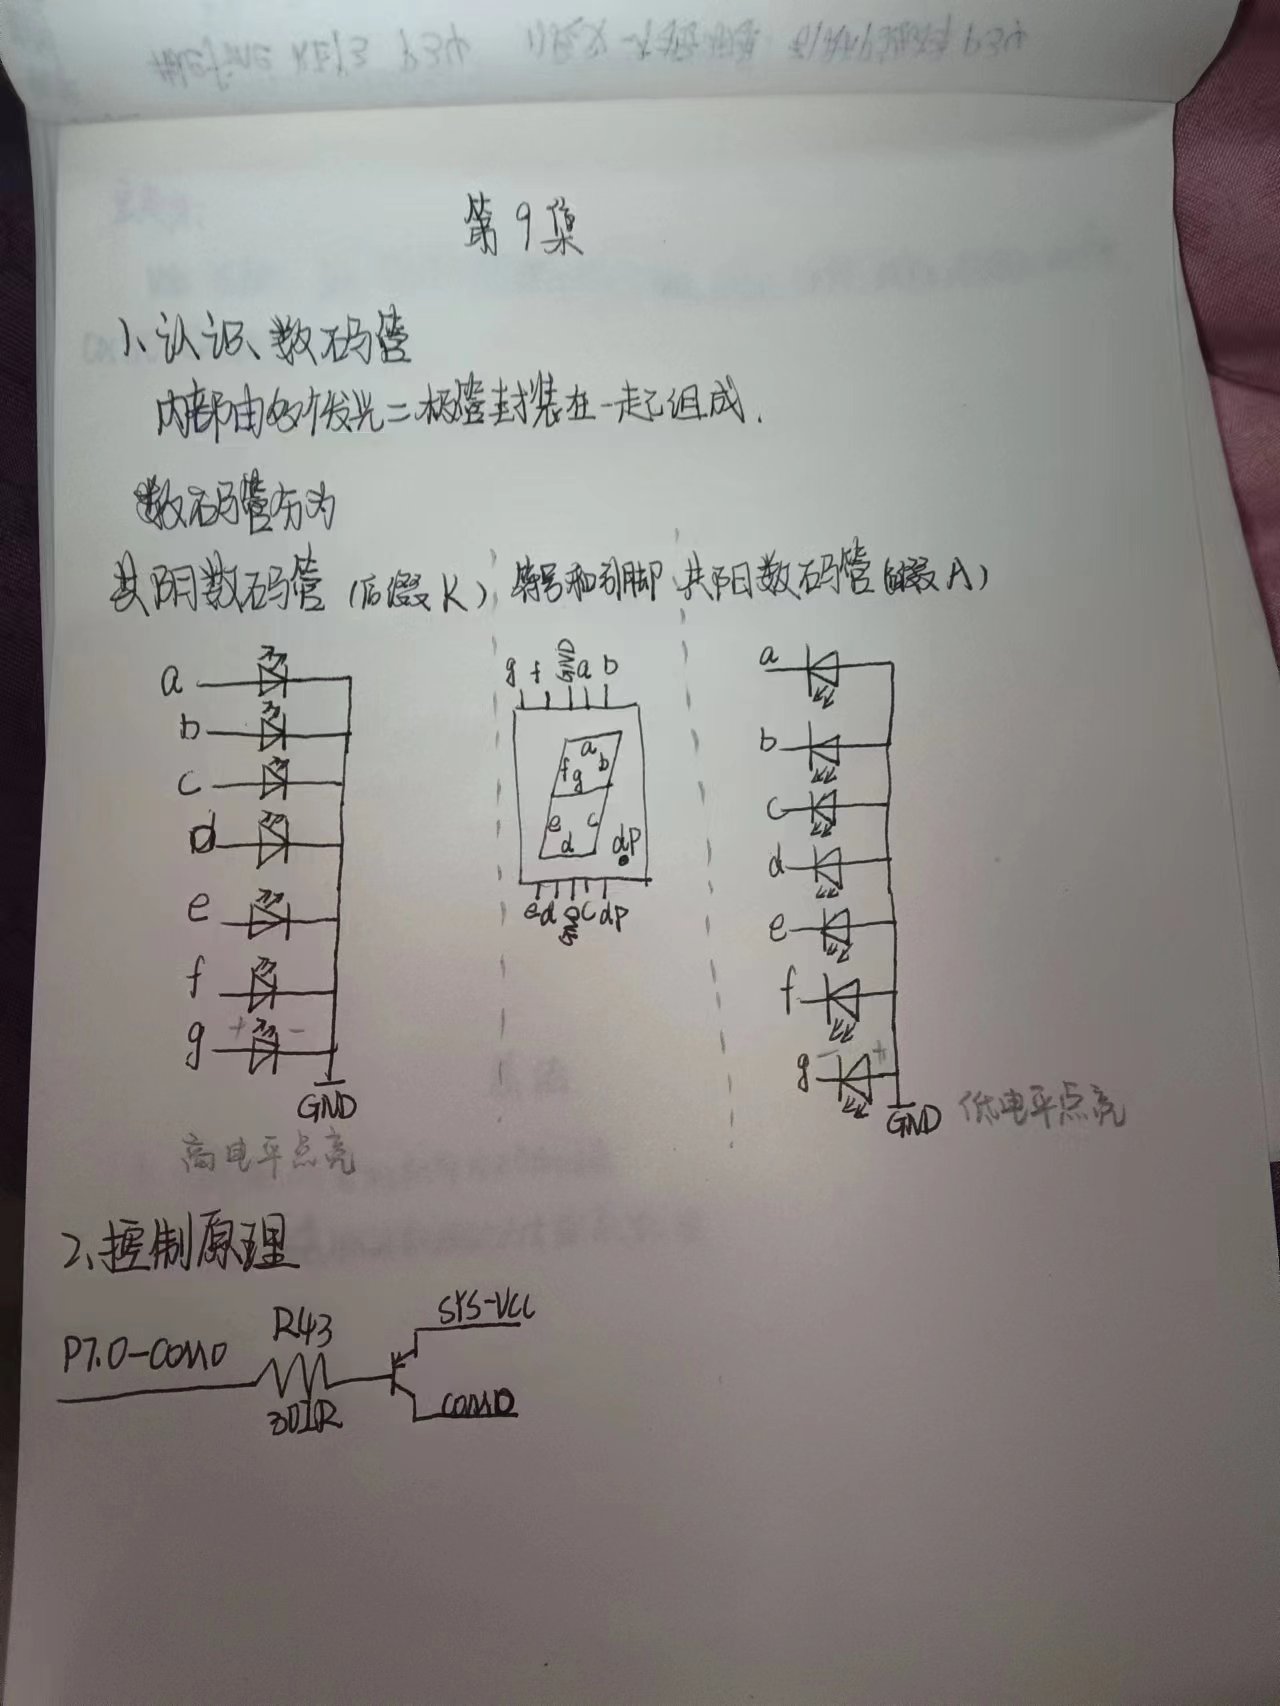 第9集
1、认识数码管
内部由多个发光二极管封装在一起组成.
数码管分为
共阴数码管(后缀K) 符号和引脚 共阳数码管(后缀A)
a
b
c
d
e
f
g + -
GND
高电平点亮
g f GND a b
a
f b
g
e c
d dp
e d GND c dp
a
b
c
d
e
f
g - +
GND 低电平点亮
2、控制原理
P7.0-COM0 R43 SYS-VCC
301R COM0